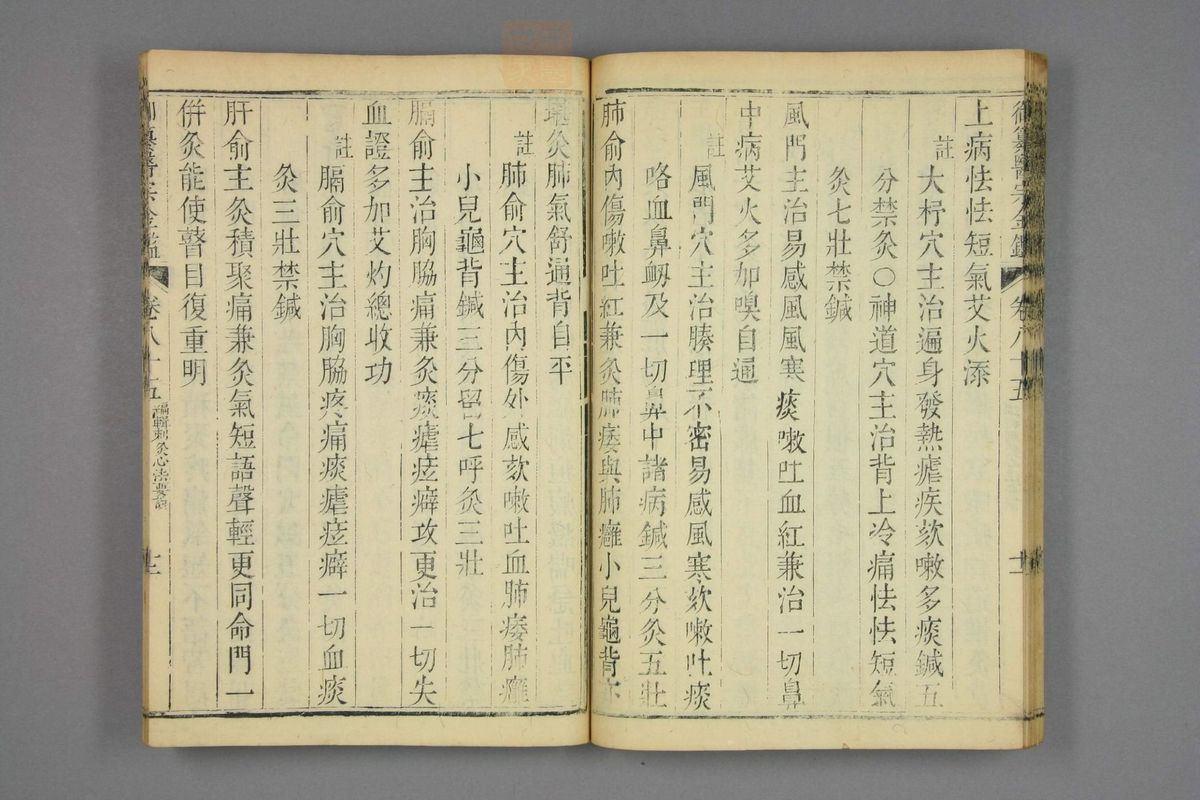 御纂醫宗金鑑 卷八十五 十一
上病怯怯短氣艾火添
註 大杼穴主治遍身發熱瘧疾欬嗽多痰鍼五
分禁灸○神道穴主治背上冷痛怯怯短氣
灸七壯禁鍼
風門主治易感風風寒痰嗽吐血紅兼治一切鼻
中病艾火多加嗅自通
註 風門穴主治腠理不密易感風寒欬嗽吐痰
咯血鼻衂及一切鼻中諸病鍼三分灸五壯
肺俞內傷嗽吐紅兼灸肺痿與肺癰小兒龜背亦
堪灸肺氣舒通背自平
註 肺俞穴主治內傷外感欬嗽吐血肺痿肺癰
小兒龜背鍼三分留七呼灸三壯
膈俞主治胸脇痛兼灸痰瘧痃癖攻更治一切失
血證多加艾灼總收功
註 膈俞穴主治胸脇疼痛痰瘧痃癖一切血痰
灸三壯禁鍼
肝俞主灸積聚痛兼灸氣短語聲輕更同命門一
併灸能使瞽目復重明
御纂醫宗金鑑 卷八十五 編輯刺灸心法要訣 十二